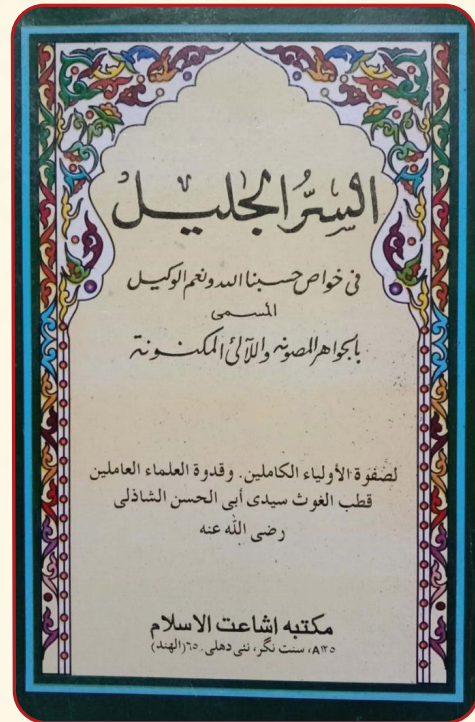 السرّ الجليل
في خواص حسبنا الله ونعم الوكيل
المسمى
بالجواهر المصونه واللآلئ المكنونة
لصفوة الأولياء الكاملين. وقدوة العلماء العاملين
قطب الغوث سيدى أبى الحسن الشاذلى
رضى الله عنه
مكتبه اشاعت الاسلام
A۱۲٥، سنت نگر، نئى دهلى. ٦٥(الهند)